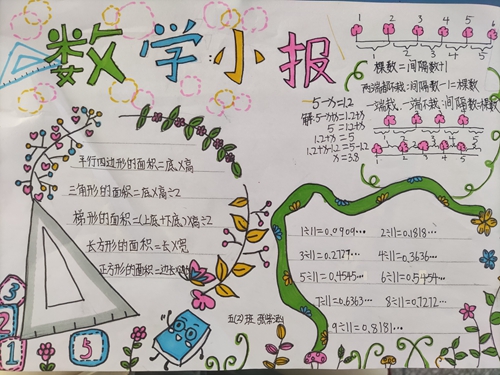 数学小报
1 2 3 4 5 6
1 2 3 4 5
棵数=间隔数+1
两端都不栽:间隔数-1=棵数
一端栽、一端不栽:间隔数=棵数
5-x=1.2
解:5-x+x=1.2+x
5=1.2+x
1.2+x=5
1.2+x-1.2=5-1.2
x=3.8
平行四边形的面积=底×高
三角形的面积=底×高÷2
梯形的面积=(上底+下底)×高÷2
长方形的面积=长×宽
正方形的面积=边长×
1÷11=0.0909… 2÷11=0.1818…
3÷11=0.2727… 4÷11=0.3636…
5÷11=0.4545… 6÷11=0.5454…
7÷11=0.6363… 8÷11=0.7272…
9÷11=0.8181…
五(2)班
3
2
1 5